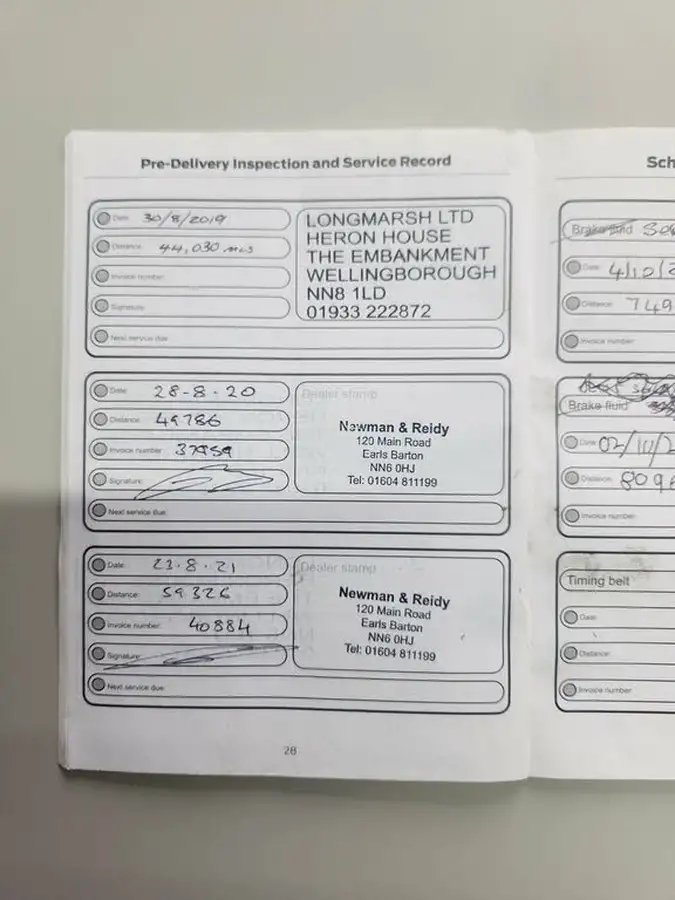 Pre-Delivery Inspection and Service Record
Date: 30/8/2019
Distance: 44,030 mls
Invoice number:
Signature:
Next service due:
LONGMARSH LTD
HERON HOUSE
THE EMBANKMENT
WELLINGBOROUGH
NN8 1LD
01933 222872
Date: 28-8-20
Distance: 49786
Invoice number: 37959
Signature:
Next service due:
Dealer stamp
Newman & Reidy
120 Main Road
Earls Barton
NN6 0HJ
Tel: 01604 811199
Date: 23.8.21
Distance: 59326
Invoice number: 40884
Signature:
Next service due:
Dealer stamp
Newman & Reidy
120 Main Road
Earls Barton
NN6 0HJ
Tel: 01604 811199
28
Sch
Brake fluid
Date: 4/10/2
Distance: 749
Invoice number:
Brake fluid
Date: 02/10/2
Distance: 809
Invoice number:
Timing belt
Date:
Distance:
Invoice number: